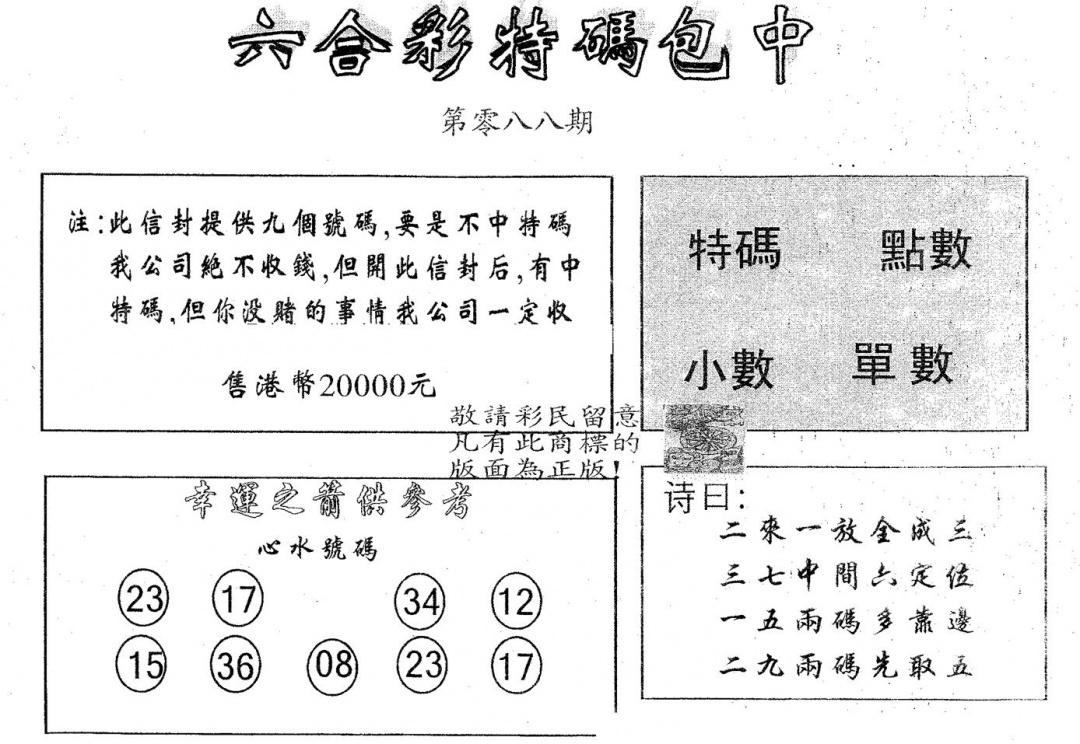 六合彩特碼包中
第零八八期
注:此信封提供九個號碼,要是不中特碼
我公司絶不收錢,但開此信封后,有中
特碼,但你没賭的事情我公司一定收
售港幣20000元
特碼 點數
小數 單數
敬請彩民留意
凡有此商標的
版面為正版!
幸運之箭供參考
心水號碼
23 17 34 12
15 36 08 23 17
诗曰:
二來一放全成三
三七中間六定位
一五兩碼多靠邊
二九兩碼先取五